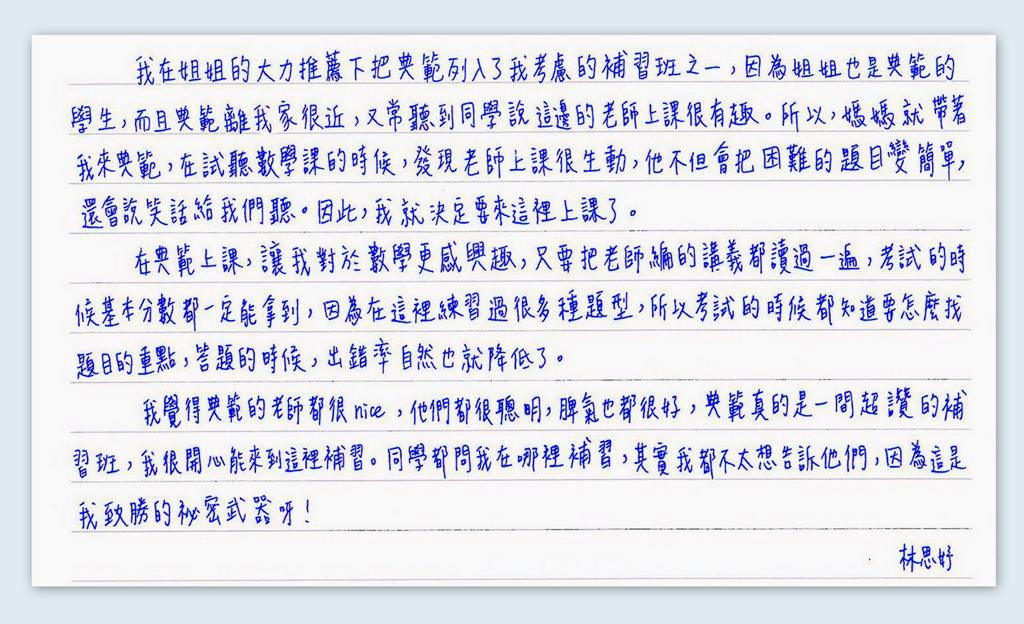 我在姐姐的大力推薦下把典範列入了我考慮的補習班之一，因為姐姐也是典範的
學生，而且典範離我家很近，又常聽到同學說這邊的老師上課很有趣。所以，媽媽就帶著
我來典範，在試聽數學課的時候，發現老師上課很生動，他不但會把困難的題目變簡單，
還會說笑話給我們聽。因此，我就決定要來這裡上課了。
在典範上課，讓我對於數學更感興趣，只要把老師編的講義都讀過一遍，考試的時
候基本分數都一定能拿到，因為在這裡練習過很多種題型，所以考試的時候都知道要怎麼找
題目的重點，答題的時候，出錯率自然也就降低了。
我覺得典範的老師都很nice，他們都很聰明，脾氣也都很好，典範真的是一間超讚的補
習班，我很開心能來到這裡補習。同學都問我在哪裡補習，其實我都不太想告訴他們，因為這是
我致勝的祕密武器呀！
林思妤